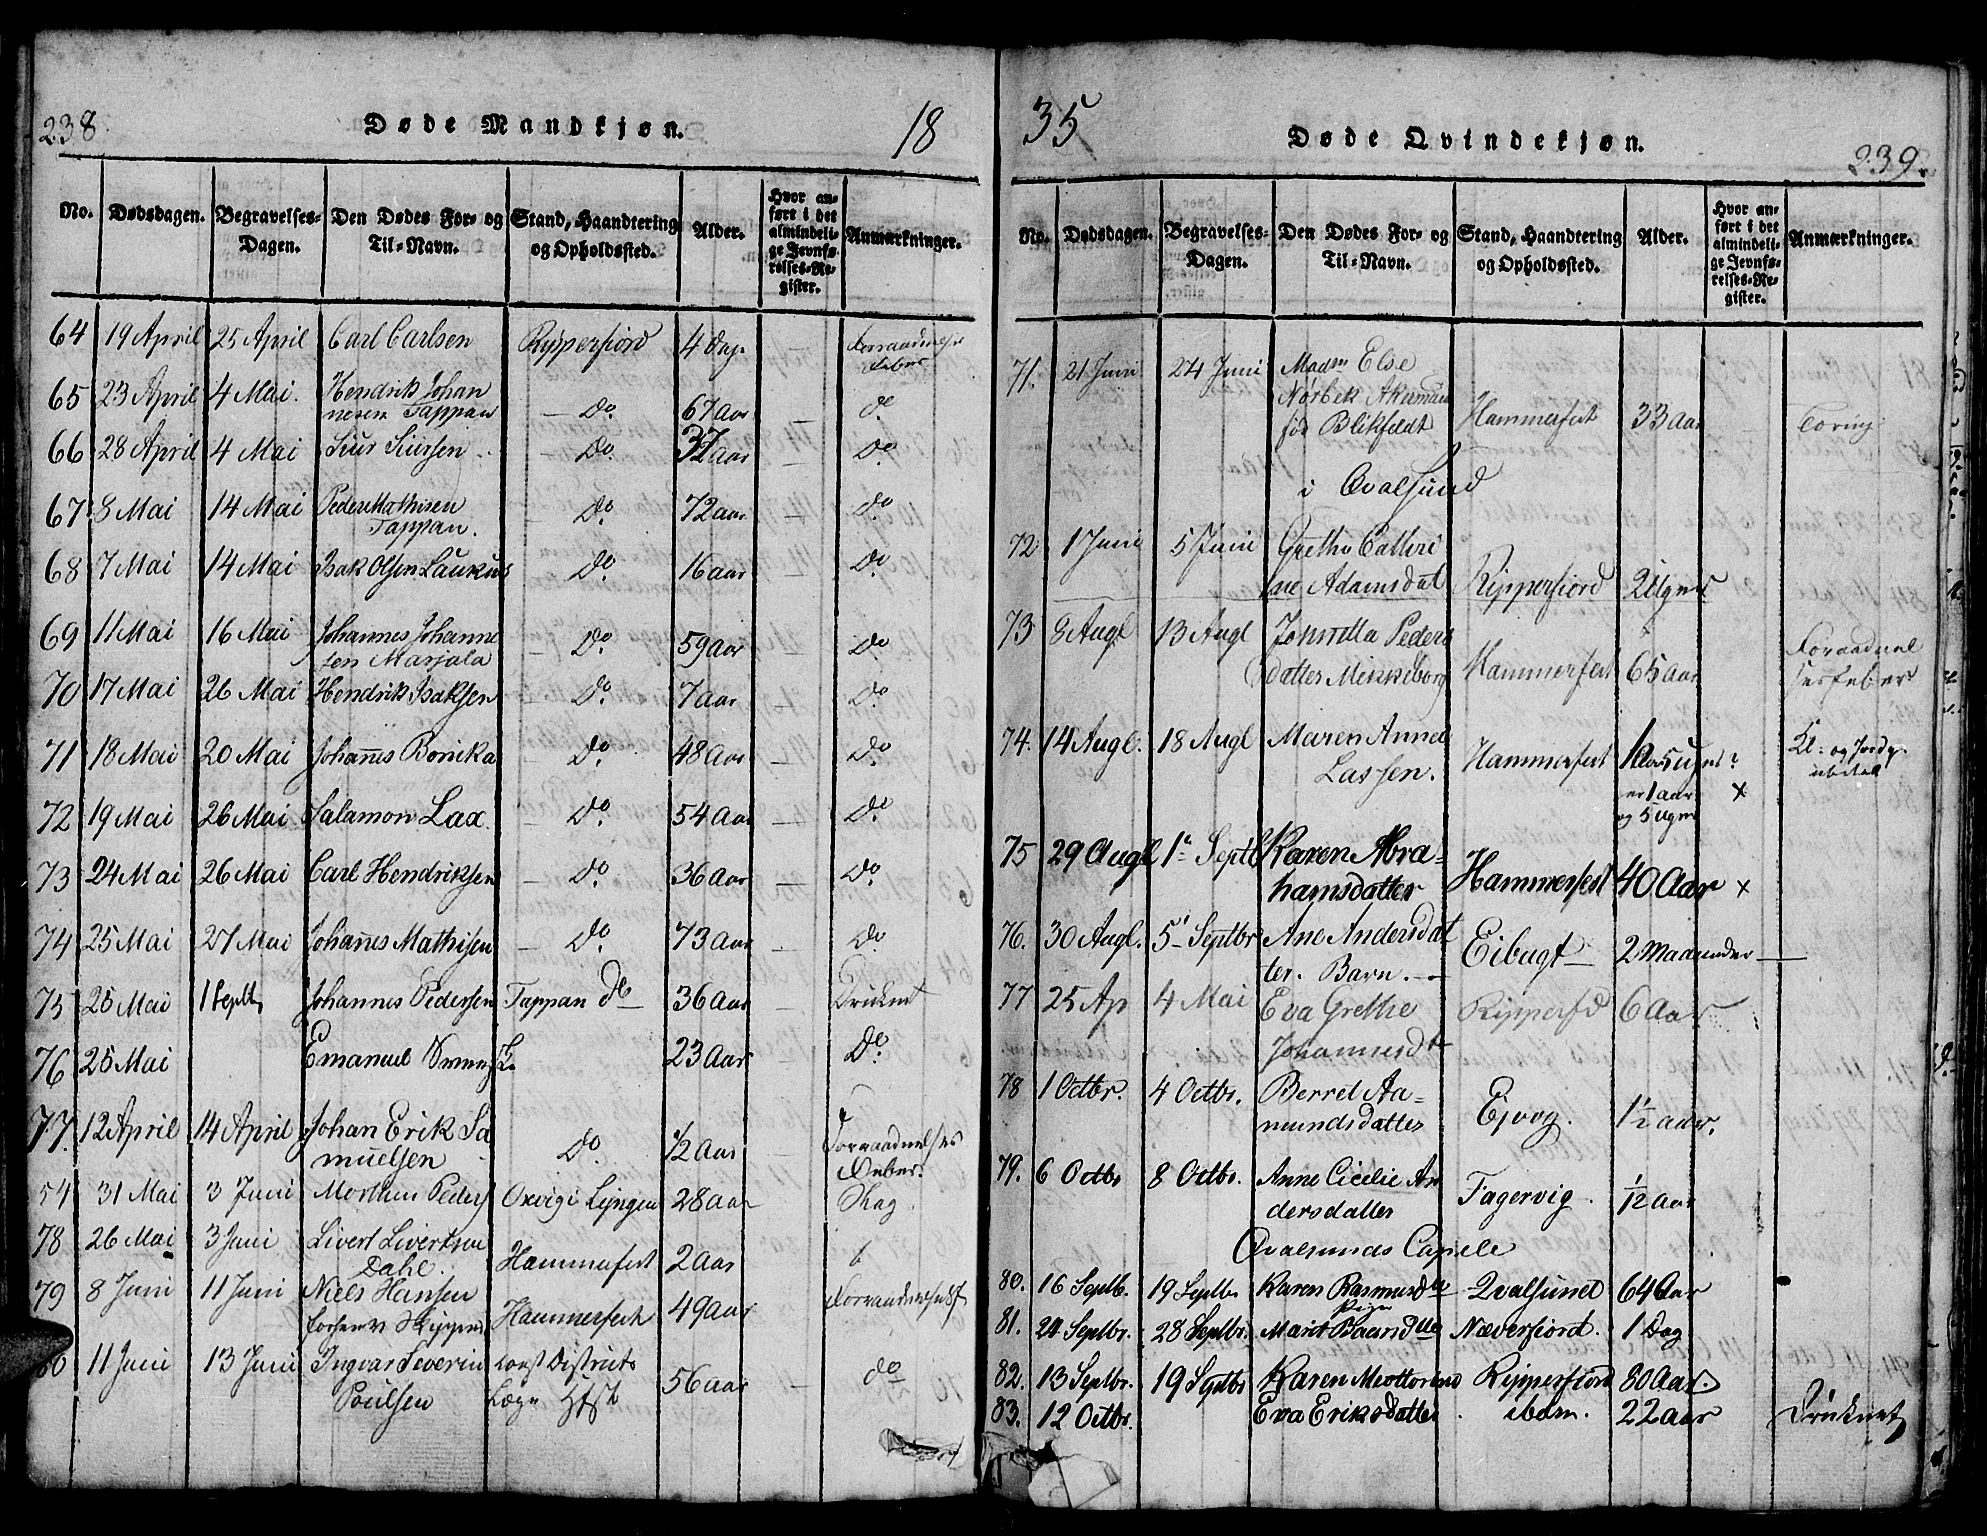 238.
Døde Mandkjøn.
18
No. Dødsdagen. Begravelses-Dagen. Den Dødes For- og Til-Navn. Stand, Haandtering og Opholdssted. Alder. Hvor anført i det almindelige Jevnførelses-Register. Anmærkninger.
64 19 April 25 April Carl Carlsen Ripperfiord 4 Dage — Forraadnelses Feber
65 23 April 4 Mai. Hendrik Johan
nesen Tappan — Do. 67 aar — do
66 28 April 4 Mai Siur Siursen — Do. 37 aar — Do
67 8 Mai 14 Mai Peder Mathisen
Tappan. — Do. 72 aar — Do
68 7 Mai 14 Mai Isak Olsen Laukus Do. 16 aar — Do
69 11 Mai 16 Mai Johannes Johanne
sen Marjala — Do. 59 aar — Do.
70 17 Mai 26 Mai Hendrik Isaksen — Do. 7 aar — Do.
71 18 Mai 20 Mai Johannes Bonika Do. 48 aar — Do.
72 19 Mai 26 Mai Salamon Lax. — Do. 54 aar — Do.
73 24 Mai 26 Mai Carl Hendriksen — Do. 36 aar — Do.
74 25 Mai 27 Mai Johannes Mathisen — Do. 73 aar — Do
75 25 Mai 1 Septb Johannes Pedersen Tappan Do 36 aar — Druknet
76 25 Mai Emanuel 23 aar Do.
77. 12 April 14 April Johan Erik Sa
muelsen Do. 1/2 aar — Forraadnelses
Feber.
54 31 Mai 3 Juni Morthen Peders Oxvigi Lyngen 28 aar — Slag.
78 26 Mai 3 Juni Livert Livertsen
Dahl. Hammerfest 2 aar
79 8 Juni 11 Juni Niels Hansen
Skipper Hammerfest 49 aar
80 11 Juni 13 Juni Ingvar Severin
Poulsen Districts
Læge Hfst 56 aar — do
35
Døde Qvindekjøn.
239.
No. Dødsdagen. Begravelses-Dagen. Den Dødes For- og Til-Navn. Stand, Haandtering og Opholdssted. Alder. Hvor anført i det almindelige Jevnførelses-Register. Anmærkninger.
71. 21 Juni 24 Juni Madm Else
Nørbek Akerman
fød Blikfeldt Hammerfest 33 aar Tæring
i Qvalsund
72 1 Juni 5 Juni Grethe Cathri
ne Adamsdat Ripperfiord 2 Uger
73 8 Augl 13 Augl Peders
datter Mikkelborg Hammerfest 65 aar Foraadnel
sesfeber
74. 14 Augl. 18 Augl Maren Anne
Lassen. Hammerfest 1 aar 5 uger
er 1 aar
og 5 Uger x
75 29 Augl 1 Septb Karen Abra=
hamsdatter Hammerfest 40 Aar x
76. 30 Augl. 5 Septbr Ane Andersdat
ter. Barn. — Eibugt — 2 Maaneder —
77 25 Ap 4 Mai Eva Grethe
Johannesdt Ripperfd 6 Aar
78 1 Octbr. 4 Octbr. Berrel Aa=
mundsdatter Ejvog. 1 1/2 aar.
79. 6 Octbr 8 Octbr. Anne Cicelie An
dersdatter Fagervig. 1/2 aar
Qvalsunds Capele
80. 16 Septb. 19 Septbr Karen Rasmusdtr Qvalsund 64 Aar
81. 24 Septbr. 28 Septbr. Marit Baarsdtter
Pige Næverfiord. 1 Dag
82. 13 Septbr. 19 Septbr Karen Ripperfiord 80 Aar.
83. 12 Octbr. Eva Eriksdatter . ibdm. 22 aar Druknet